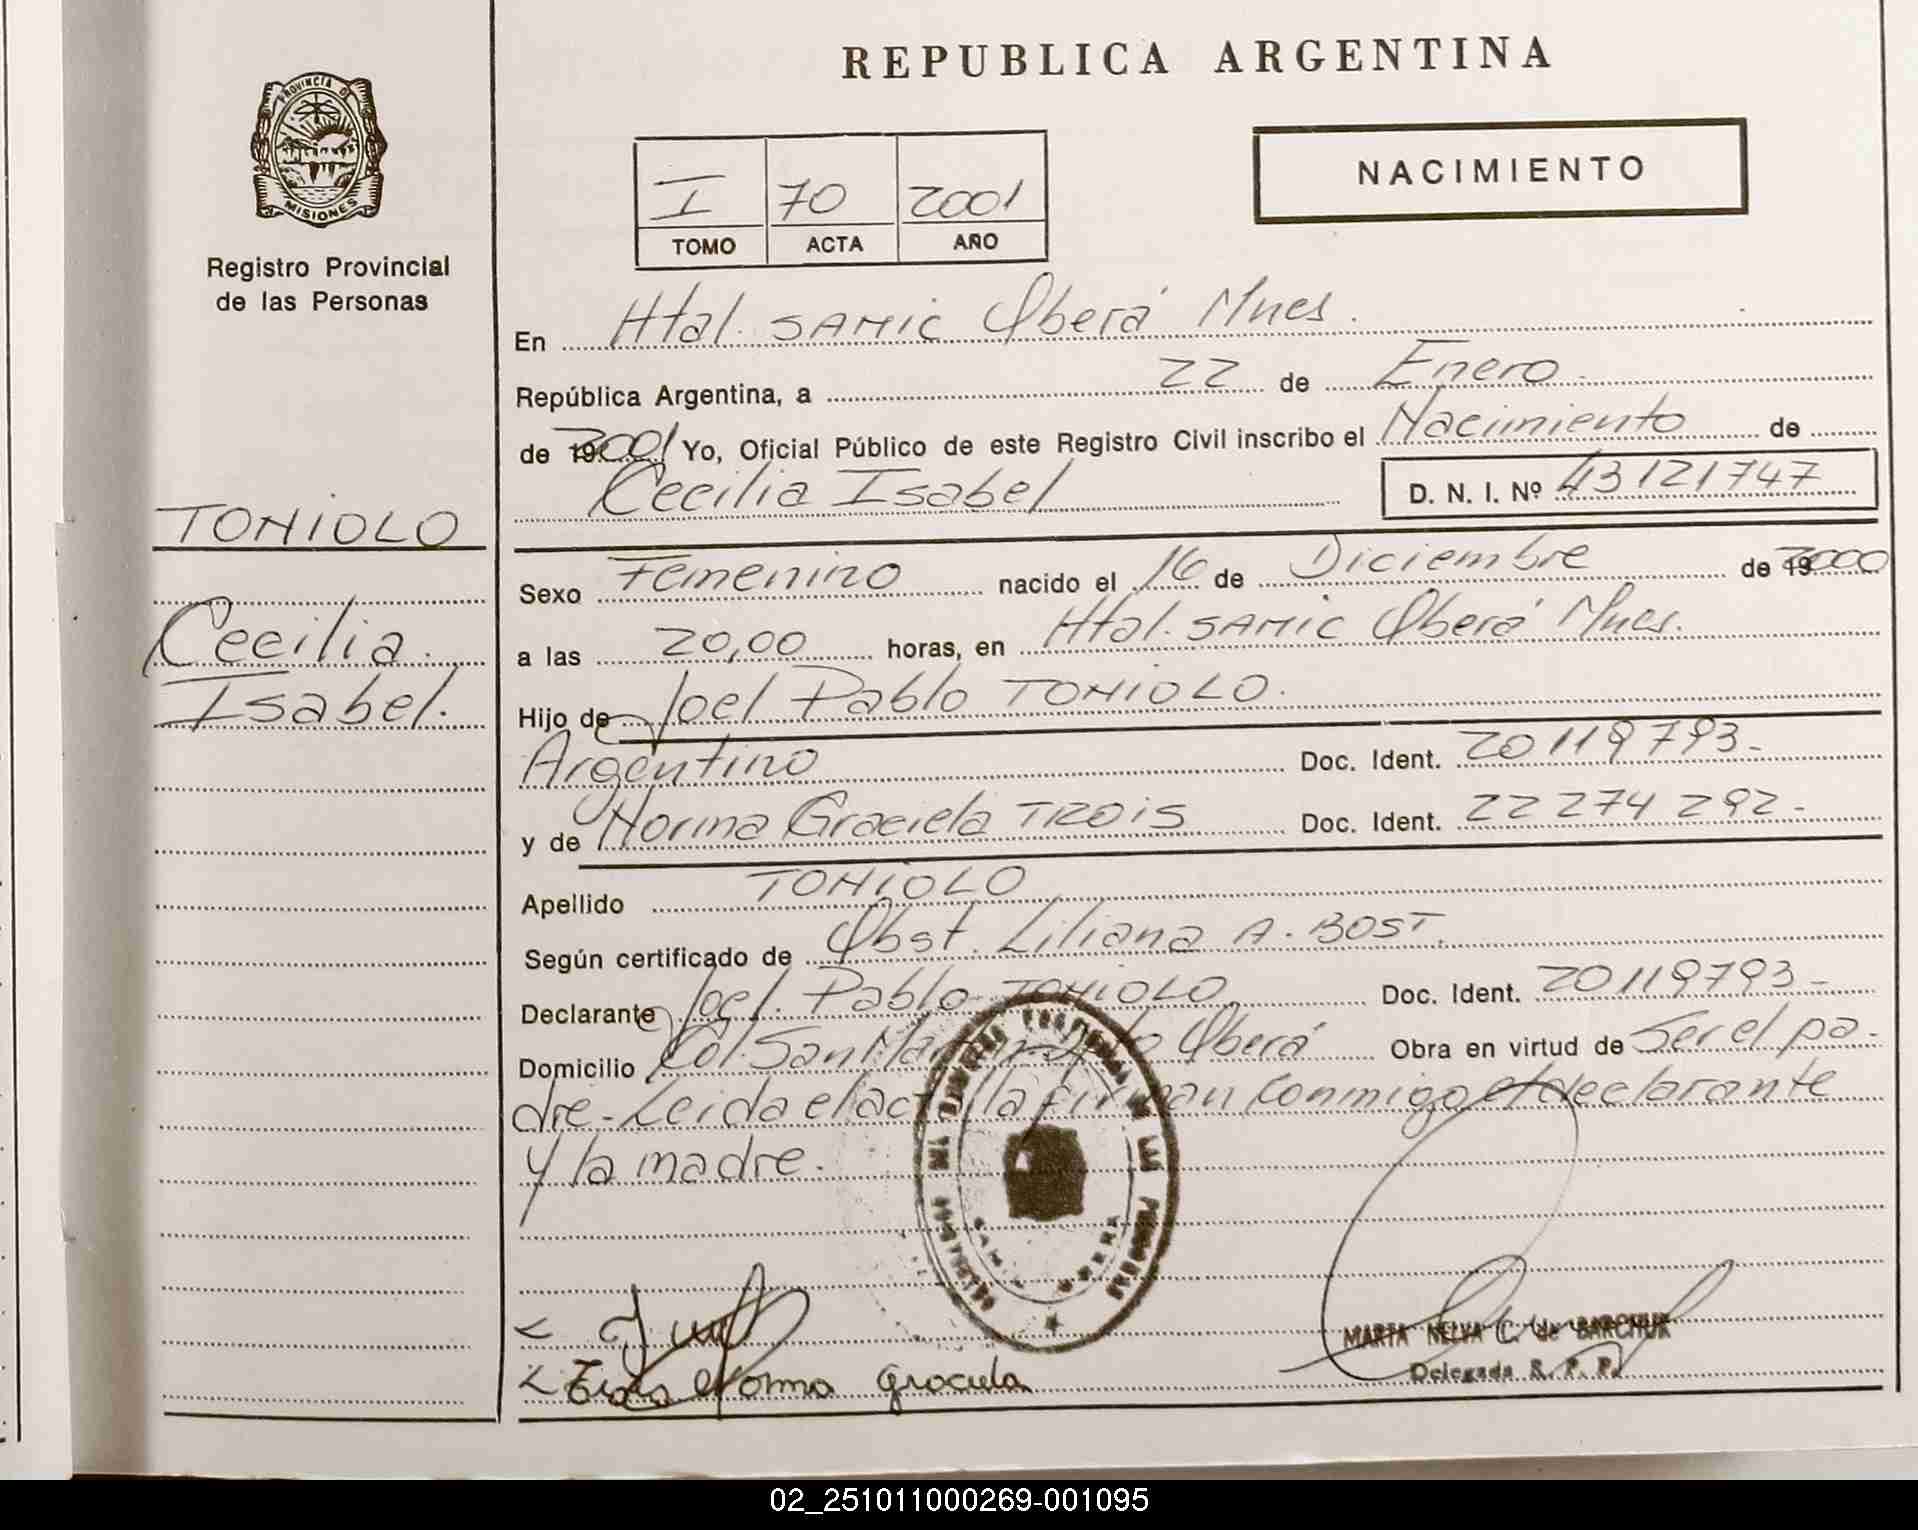 REPUBLICA ARGENTINA
PROVINCIA DE
MISIONES
Registro Provincial
de las Personas
I 70 2001
TOMO ACTA AÑO
NACIMIENTO
En Htal. SAMIC Oberá Mnes.
República Argentina, a 22 de Enero
de 19 2001 Yo, Oficial Público de este Registro Civil inscribo el Nacimiento de
Cecilia Isabel D. N. I. Nº 43121747
TONIOLO
Cecilia
Isabel.
Sexo Femenino nacido el 16 de Diciembre de 19 2000
a las 20,00 horas, en Htal. SAMIC Oberá Mnes.
Hijo de Joel Pablo TONIOLO.
Argentino Doc. Ident. 20119793-
y de Norma Graciela TROIS Doc. Ident. 22274292-
Apellido TONIOLO
Según certificado de Obst. Liliana A. BOST.
Declarante Joel Pablo TONIOLO Doc. Ident. 20119793-
Domicilio Col. San Martín Oberá Obra en virtud de Ser el pa-
dre- Leida el acta la firman conmigo el declarante
y la madre.
MARTA NELVA C. de BARCHUK
Delegada R. P. P.
Norma Graciela
02_251011000269-001095